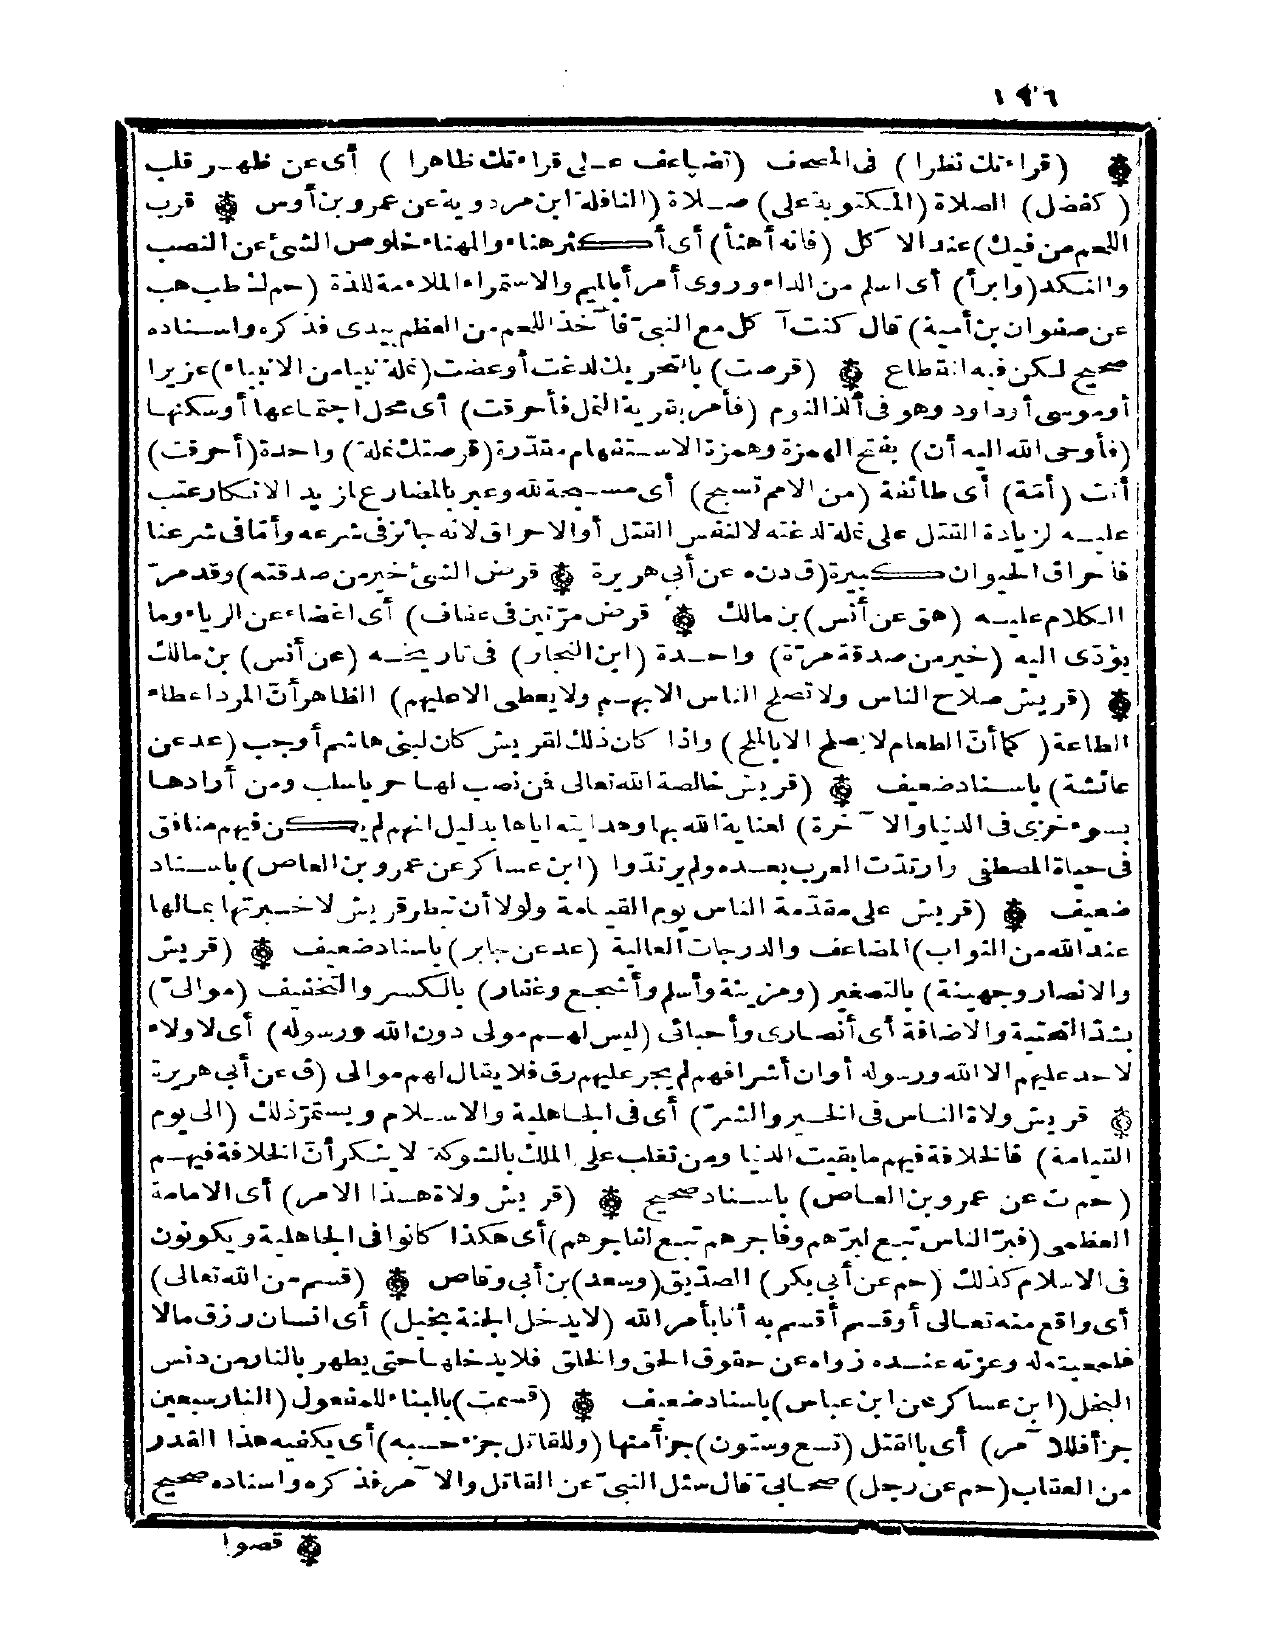 ١٩٦
(قراءتك نظرا) فى المصحف (تضاعف على قراءتك ظاهرا) أى عن ظهر قلب
(كفضل) الصلاة (المكتوبة على) صلاة (النافلة ابن مردويه عن عمرو بن أوس قرب
اللحم من فيك) عند الاكل (فانه أهنأ) أى أكثر هناء والهناء خلوص الشئ عن النصب
والنكد (وابرأ) أى اسلم من الداء وروى أمرأ بالميم والاستمراء الملاءمة للذة (حم ك طب هب
عن صفوان بن أمية) قال كنت آكل مع النبى فآخذ اللحم من العظم بيدى فذكره واسناده
صحيح لكن فيه انقطاع (قرصت) بالتحريك لدغت أو عضت (نملة نبيا من الانبياء) عزيرا
أو موسى أو داود وهو فى ألذ النوم (فأمر بقرية النمل فأحرقت) أى محل اجتماعها أو سكنها
(فأوحى الله اليه أن) بفتح الهمزة وهمزة الاستفهام مقدرة (قرصتك نملة) واحدة (أحرقت)
أنت (أمّة) أى طائفة (من الامم تسبح) أى مسبحة لله وعبر بالمضارع لمزيد الانكار عتب
عليه لزيادة القتل على نملة لدغته لا لنفس القتل أو الاحراق لانه جائز فى شرعه وأمّا فى شرعنا
فاحراق الحيوان كبيرة (ق د ن ه عن أبى هريرة قرض الشئ خير من صدقته) وقد مرّ
الكلام عليه (هق عن أنس) بن مالك قرض مرّتين فى عفاف) أى اغضاء عن الرياء وما
يؤدّى اليه (خير من صدقة مرّة) واحدة (ابن النجار) فى تاريخه (عن أنس) بن مالك
(قريش صلاح الناس ولا تصلح الناس الا بهم ولا يعطى الا عليهم) الظاهر أنّ المراد اعطاء
الطاعة (كما أنّ الطعام لا يصلح الا بالملح) واذا كان ذلك لقريش كان لبنى هاشم أوجب (عد عن
عائشة) باسناد ضعيف (قريش خالصة الله تعالى فمن نصب لها حربا سلب ومن أرادها
بسوء خزى فى الدنيا والآخرة) لعناية الله بها وهدايته اياها بدليل انهم لم يكن فيهم منافق
فى حياة المصطفى وارتدّت العرب بعده ولم يرتدّوا (ابن عساكر عن عمرو بن العاص) باسناد
ضعيف (قريش على مقدّمة الناس يوم القيامة ولولا أن تبطر قريش لاخبرتها بما لها
عند الله من الثواب) المضاعف والدرجات العالية (عد عن جابر) باسناد ضعيف (قريش
والانصار وجهينة) بالتصغير (ومزينة وأسلم وأشجع وغفار) بالكسر والتخفيف (موالىّ)
بشدّ التحتية والاضافة أى أنصارى وأحبائى (ليس لهم مولى دون الله ورسوله) أى لا ولاء
لاحد عليهم الا الله ورسوله أو ان أشرافهم لم يجر عليهم رق فلا يقال لهم موالى (ق عن أبى هريرة
قريش ولاة الناس فى الخير والشرّ) أى فى الجاهلية والاسلام ويستمرّ ذلك (الى يوم
القيامة) فالخلافة فيهم ما بقيت الدنيا ومن تغلب على الملك بالشوكة لا ينكر أنّ الخلافة فيهم
(حم ت عن عمرو بن العاص) باسناد صحيح (قريش ولاة هذا الامر) أى الامامة
العظمى (فبرّ الناس تبع لبرّهم وفاجرهم تبع لفاجرهم) أى هكذا كانوا فى الجاهلية ويكونون
فى الاسلام كذلك (حم عن أبى بكر) الصدّيق (وسعد) بن أبى وقاص (قسم من الله تعالى)
أى واقع منه تعالى أو قسم أقسم به أنا بأمر الله (لا يدخل الجنة بخيل) أى انسان رزق مالا
فلمحبته له وعزته عنده زواه عن حقوق الحق والخلق فلا يدخلها حتى يطهر بالنار من دنس
البخل (ابن عساكر عن ابن عباس) باسناد ضعيف (قسمت) بالبناء للمفعول (النار سبعين
جزأ فللآمر) أى بالقتل (تسع وستون) جزأ منها (وللقاتل جزء حسبه) أى يكفيه هذا القدر
من العقاب (حم عن رجل) صحابىّ قال سئل النبىّ عن القاتل والآمر فذكره واسناده صحيح
قصوا